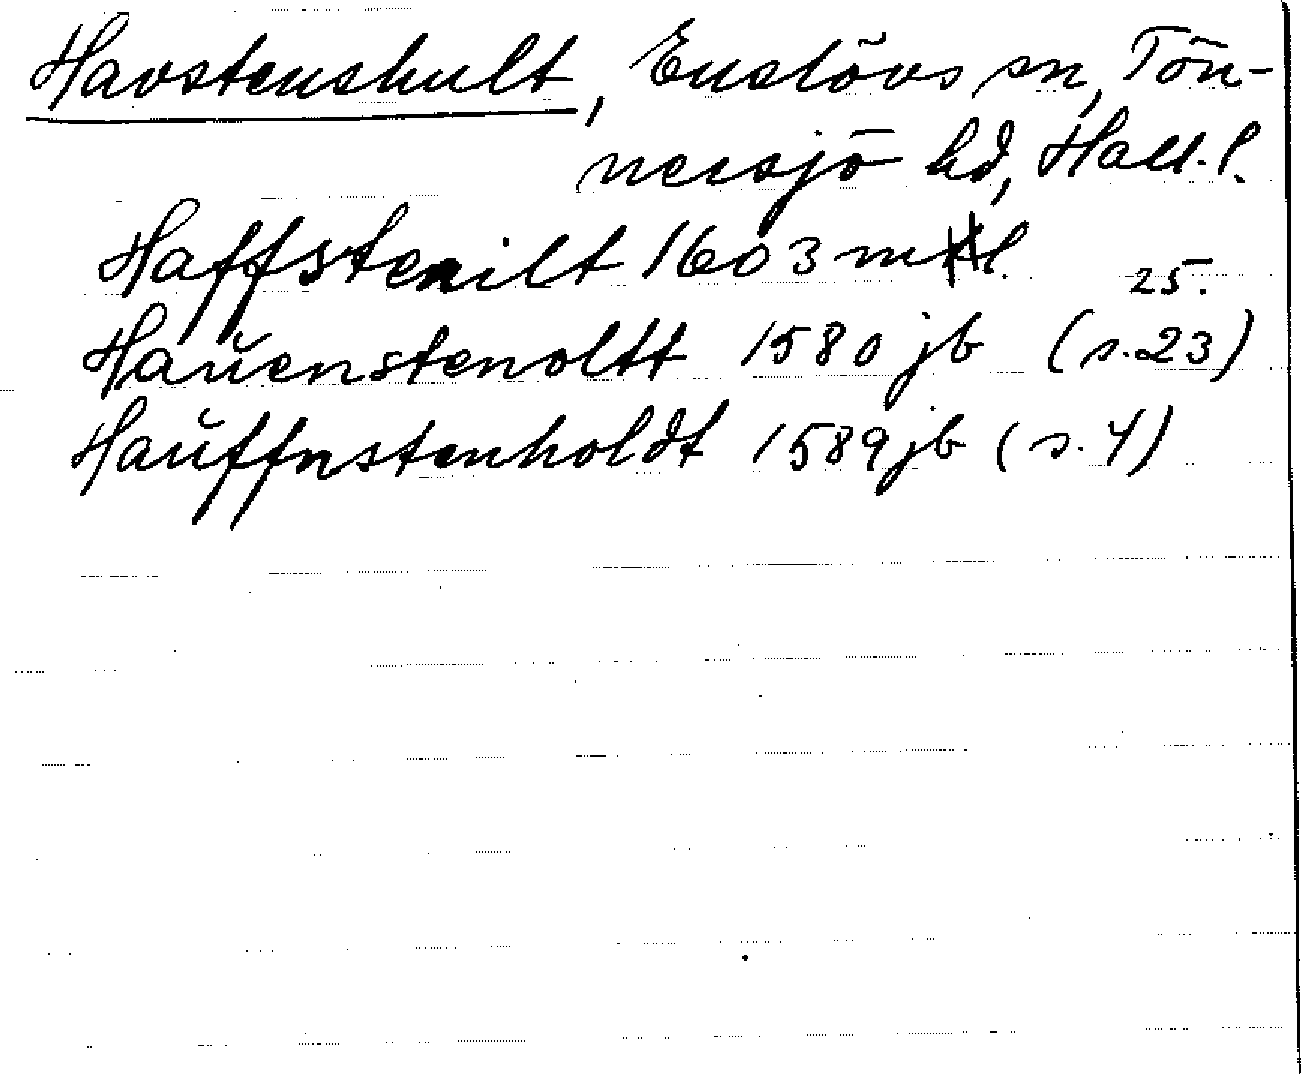 Havstenshult, Enslövs sn, Tön-
nersjö hd, Hall. l.
Haffstenilt 1603 mtl. 25.
Haŭenstenoltt 1580 jb (s. 23)
Haŭffnstenholdt 1589 jb (s. 4)